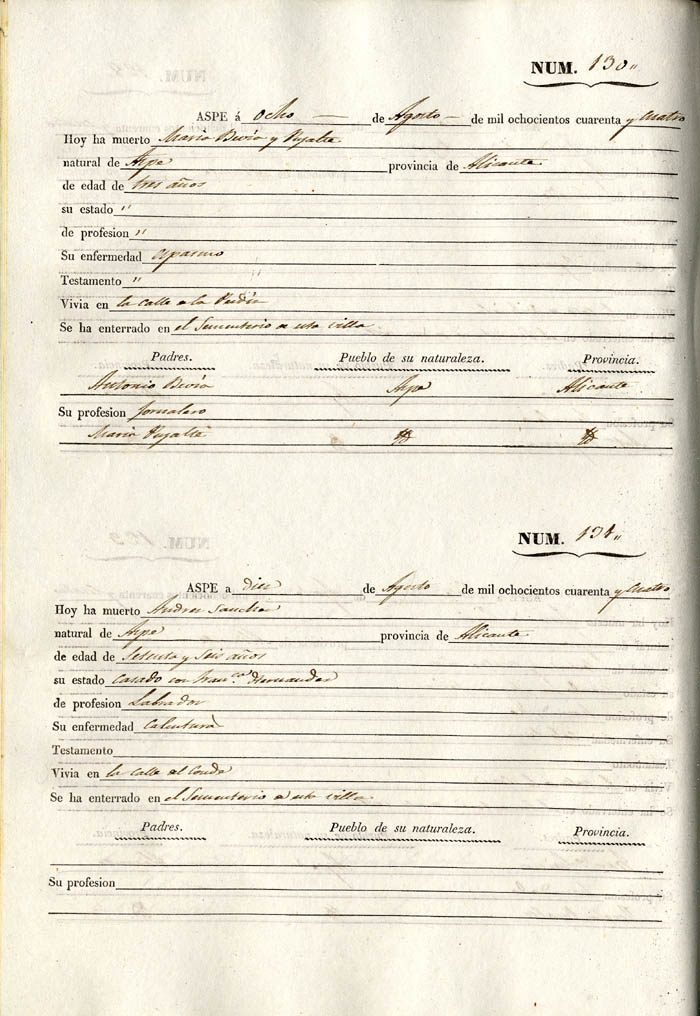 NUM. 130,,
ASPE á ocho — de Agosto — de mil ochocientos cuarenta y cuatro
Hoy ha muerto Maria y
natural de Aspe provincia de Alicante
de edad de tres años
su estado "
de profesion "
Su enfermedad espasmo
Testamento "
Vivia en la calle
Se ha enterrado en el Sementerio esta villa
Padres. Pueblo de su naturaleza. Provincia.
Antonio Aspe Alicante
Su profesion Jornalero
Maria
NUM. 131,,
ASPE a diez de Agosto de mil ochocientos cuarenta y cuatro
Hoy ha muerto Andres Sanchez
natural de Aspe provincia de Alicante
de edad de Setenta y Seis años
su estado Casado con Fran.ca Hernandez
de profesion Labrador
Su enfermedad Calentura
Testamento
Vivia en la calle el Conde
Se ha enterrado en el Sementerio esta villa
Padres. Pueblo de su naturaleza. Provincia.
Su profesion